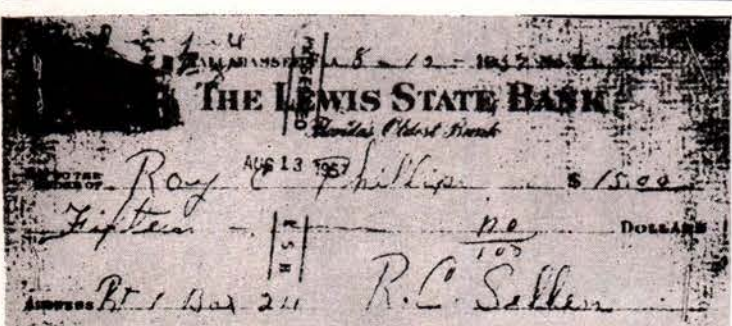 TALLAHASSEE, FLA 8 - 12 - 1957 No.
THE LEWIS STATE BANK
Florida's Oldest Bank
PAY TO THE
ORDER OF Roy C Phillips $ 15.00
AUG 13 1957
Fifteen no/100 DOLLARS
ADDRESS Rt 1 Box 24 R.C. Sellen